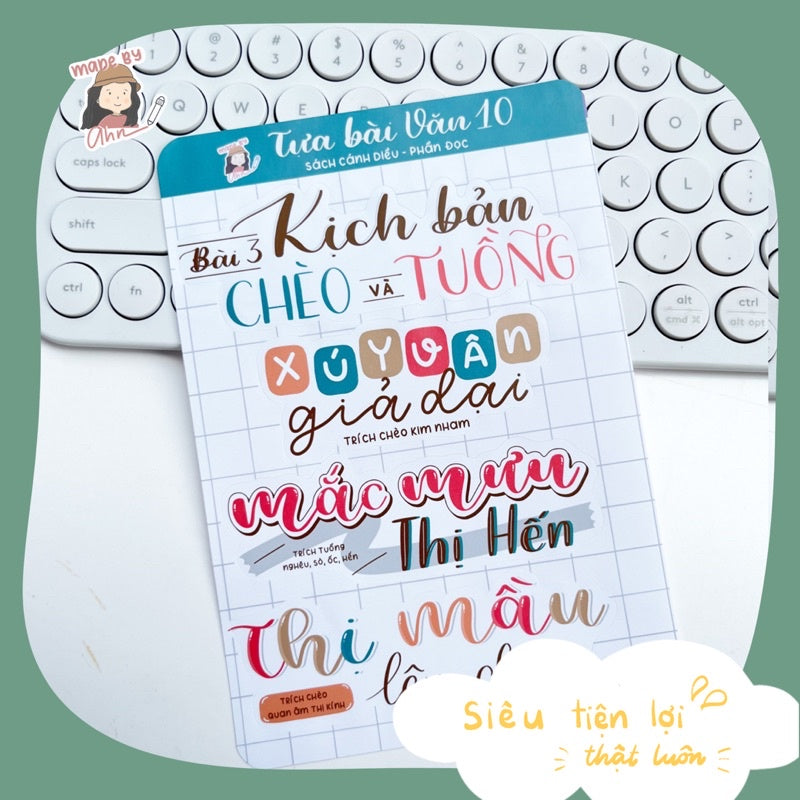 MADE BY
Ahn
! 1
@ 2
# 3
$ 4
% 5
^ 6
& 7
* 8
( 9
Q W E
caps lock
K L
shift
ctrl fn
alt
cmd ⌘
ctrl
alt opt
Tựa bài Văn 10
SÁCH CÁNH DIỀU - PHẦN ĐỌC
Bài 3 Kịch bản
CHÈO VÀ TUỒNG
XÚY VÂN
giả dại
TRÍCH CHÈO KIM NHAM
mắc mưu
Thị Hến
TRÍCH TUỒNG
NGHÊU, SÒ, ỐC, HẾN
Thị mầu
TRÍCH CHÈO
QUAN ÂM THỊ KÍNH
Siêu tiện lợi
thật luôn